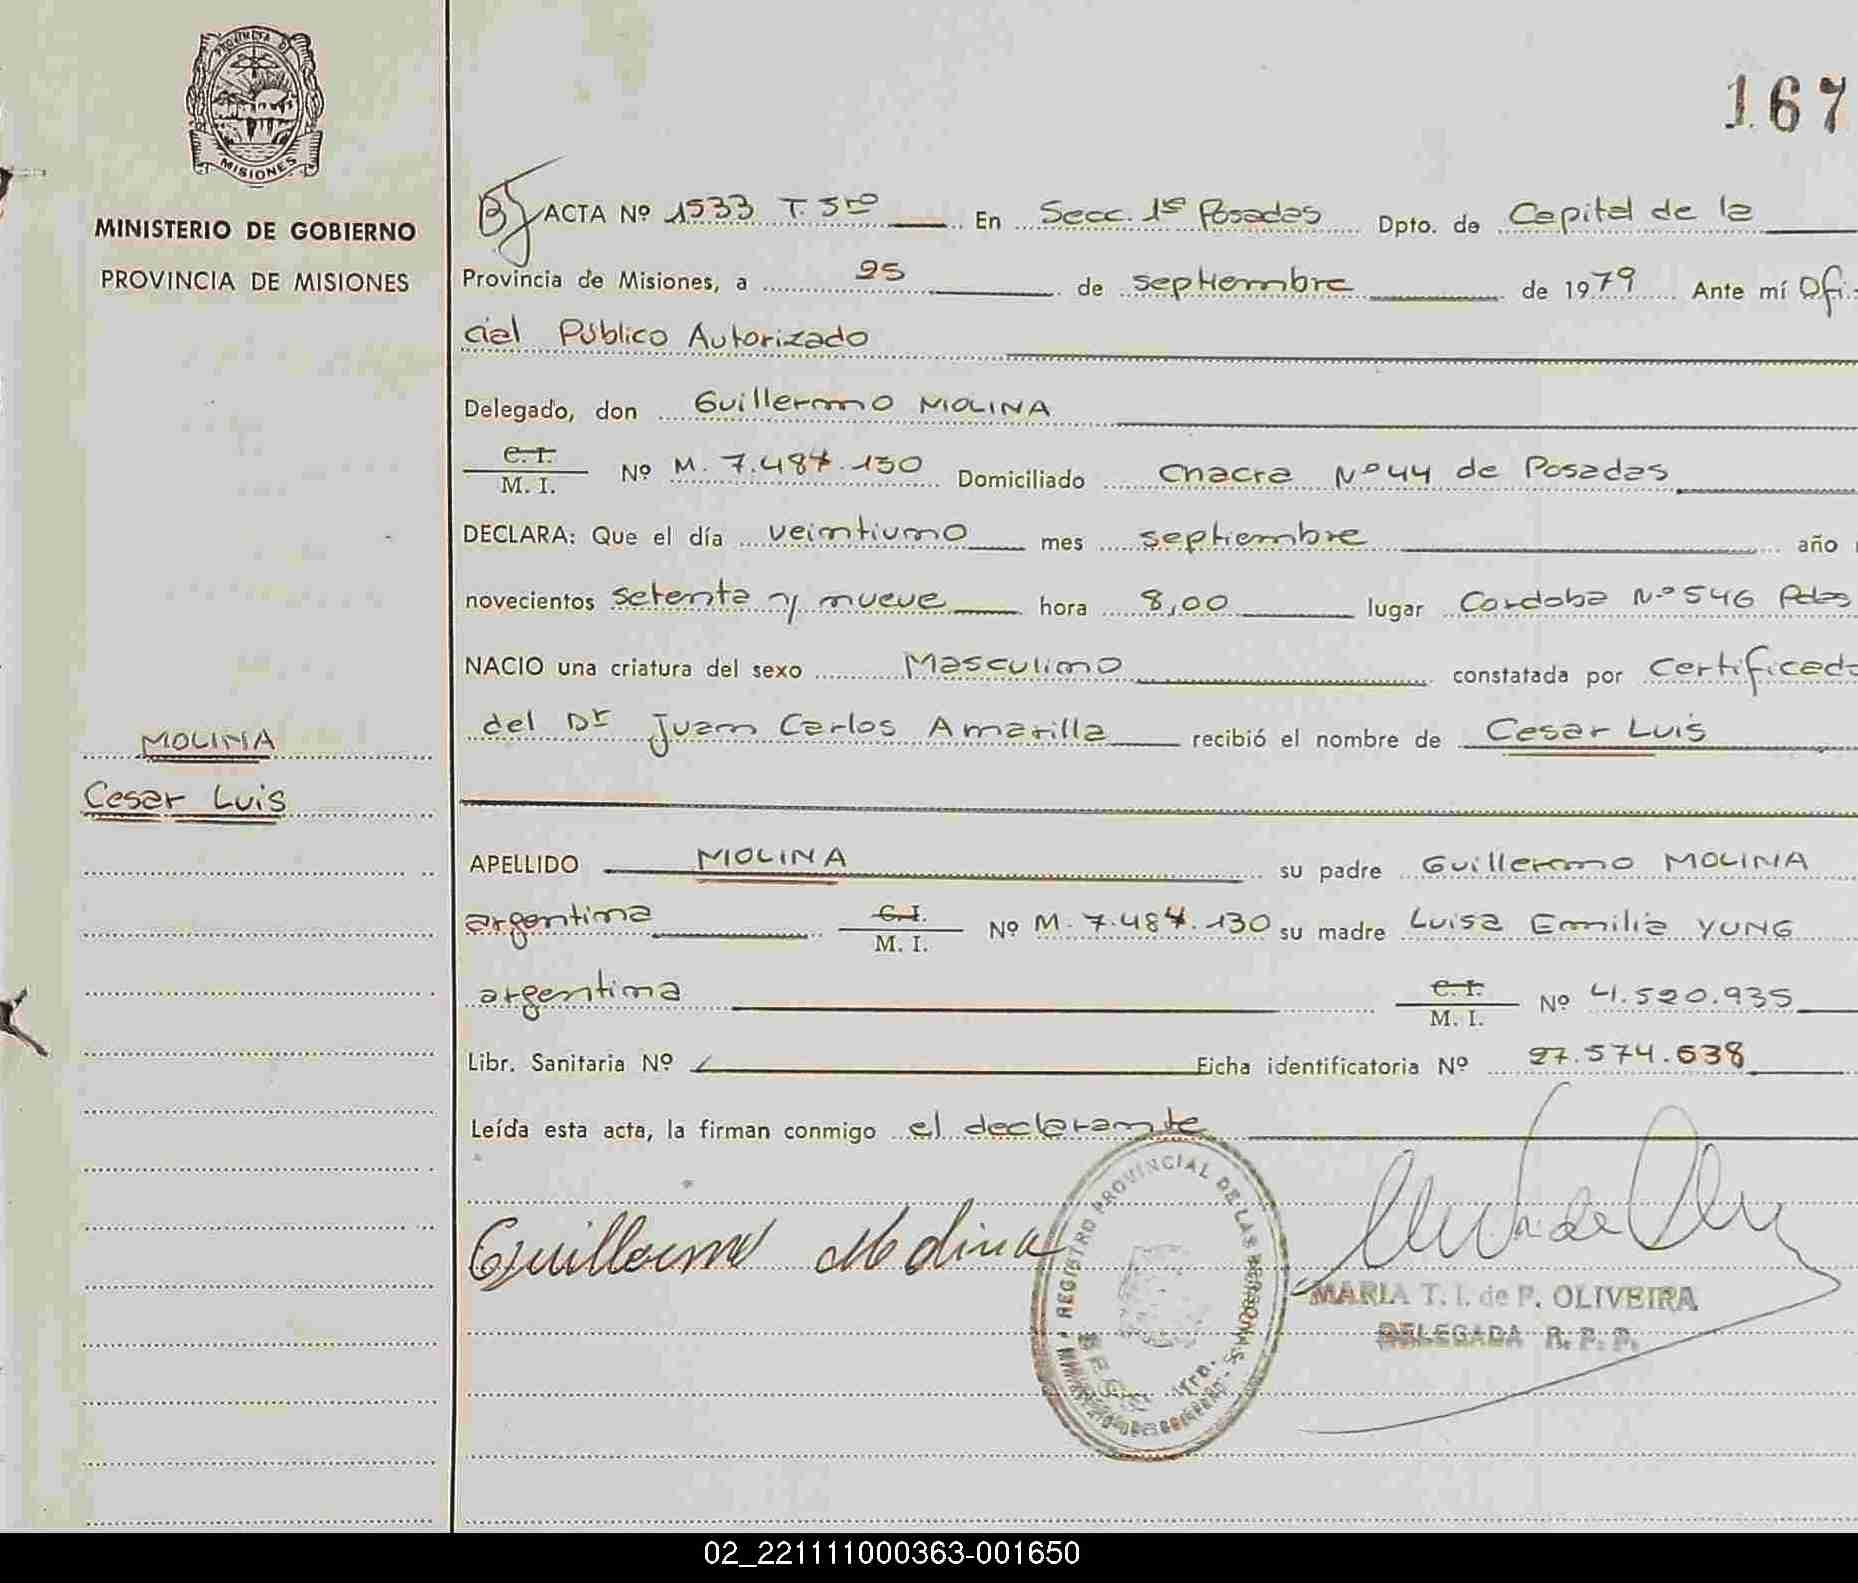 PROVINCIA DE
MISIONES
MINISTERIO DE GOBIERNO
PROVINCIA DE MISIONES
MOLINA
Cesar Luis
167
ACTA Nº 1533 T. 5to En Secc. 1ª Posadas Dpto. de Capital de la
Provincia de Misiones, a 25 de septiembre de 1979 Ante mí Ofi-
cial Público Autorizado
Delegado, don Guillermo MOLINA
C. I.
M. I. Nº M. 7.484.130 Domiciliado Chacra Nº 44 de Posadas
DECLARA: Que el día veintiuno mes septiembre año
novecientos setenta y nueve hora 8,00 lugar Cordoba Nº 546 Pdas
NACIO una criatura del sexo Masculino constatada por Certificado
del Dr Juan Carlos Amarilla recibió el nombre de Cesar Luis
APELLIDO MOLINA su padre Guillermo MOLINA
argentina C. I. M. I. Nº M. 7.484.130 su madre Luisa Emilia YUNG
argentina C. I. M. I. Nº 4.520.935
Libr. Sanitaria Nº Ficha identificatoria Nº 27.574.638
Leída esta acta, la firman conmigo el declarante
Guillermo Molina
REGISTRO PROVINCIAL DE LAS PERSONAS
MARIA T. I. de P. OLIVEIRA
DELEGADA R. P. P.
02_221111000363-001650